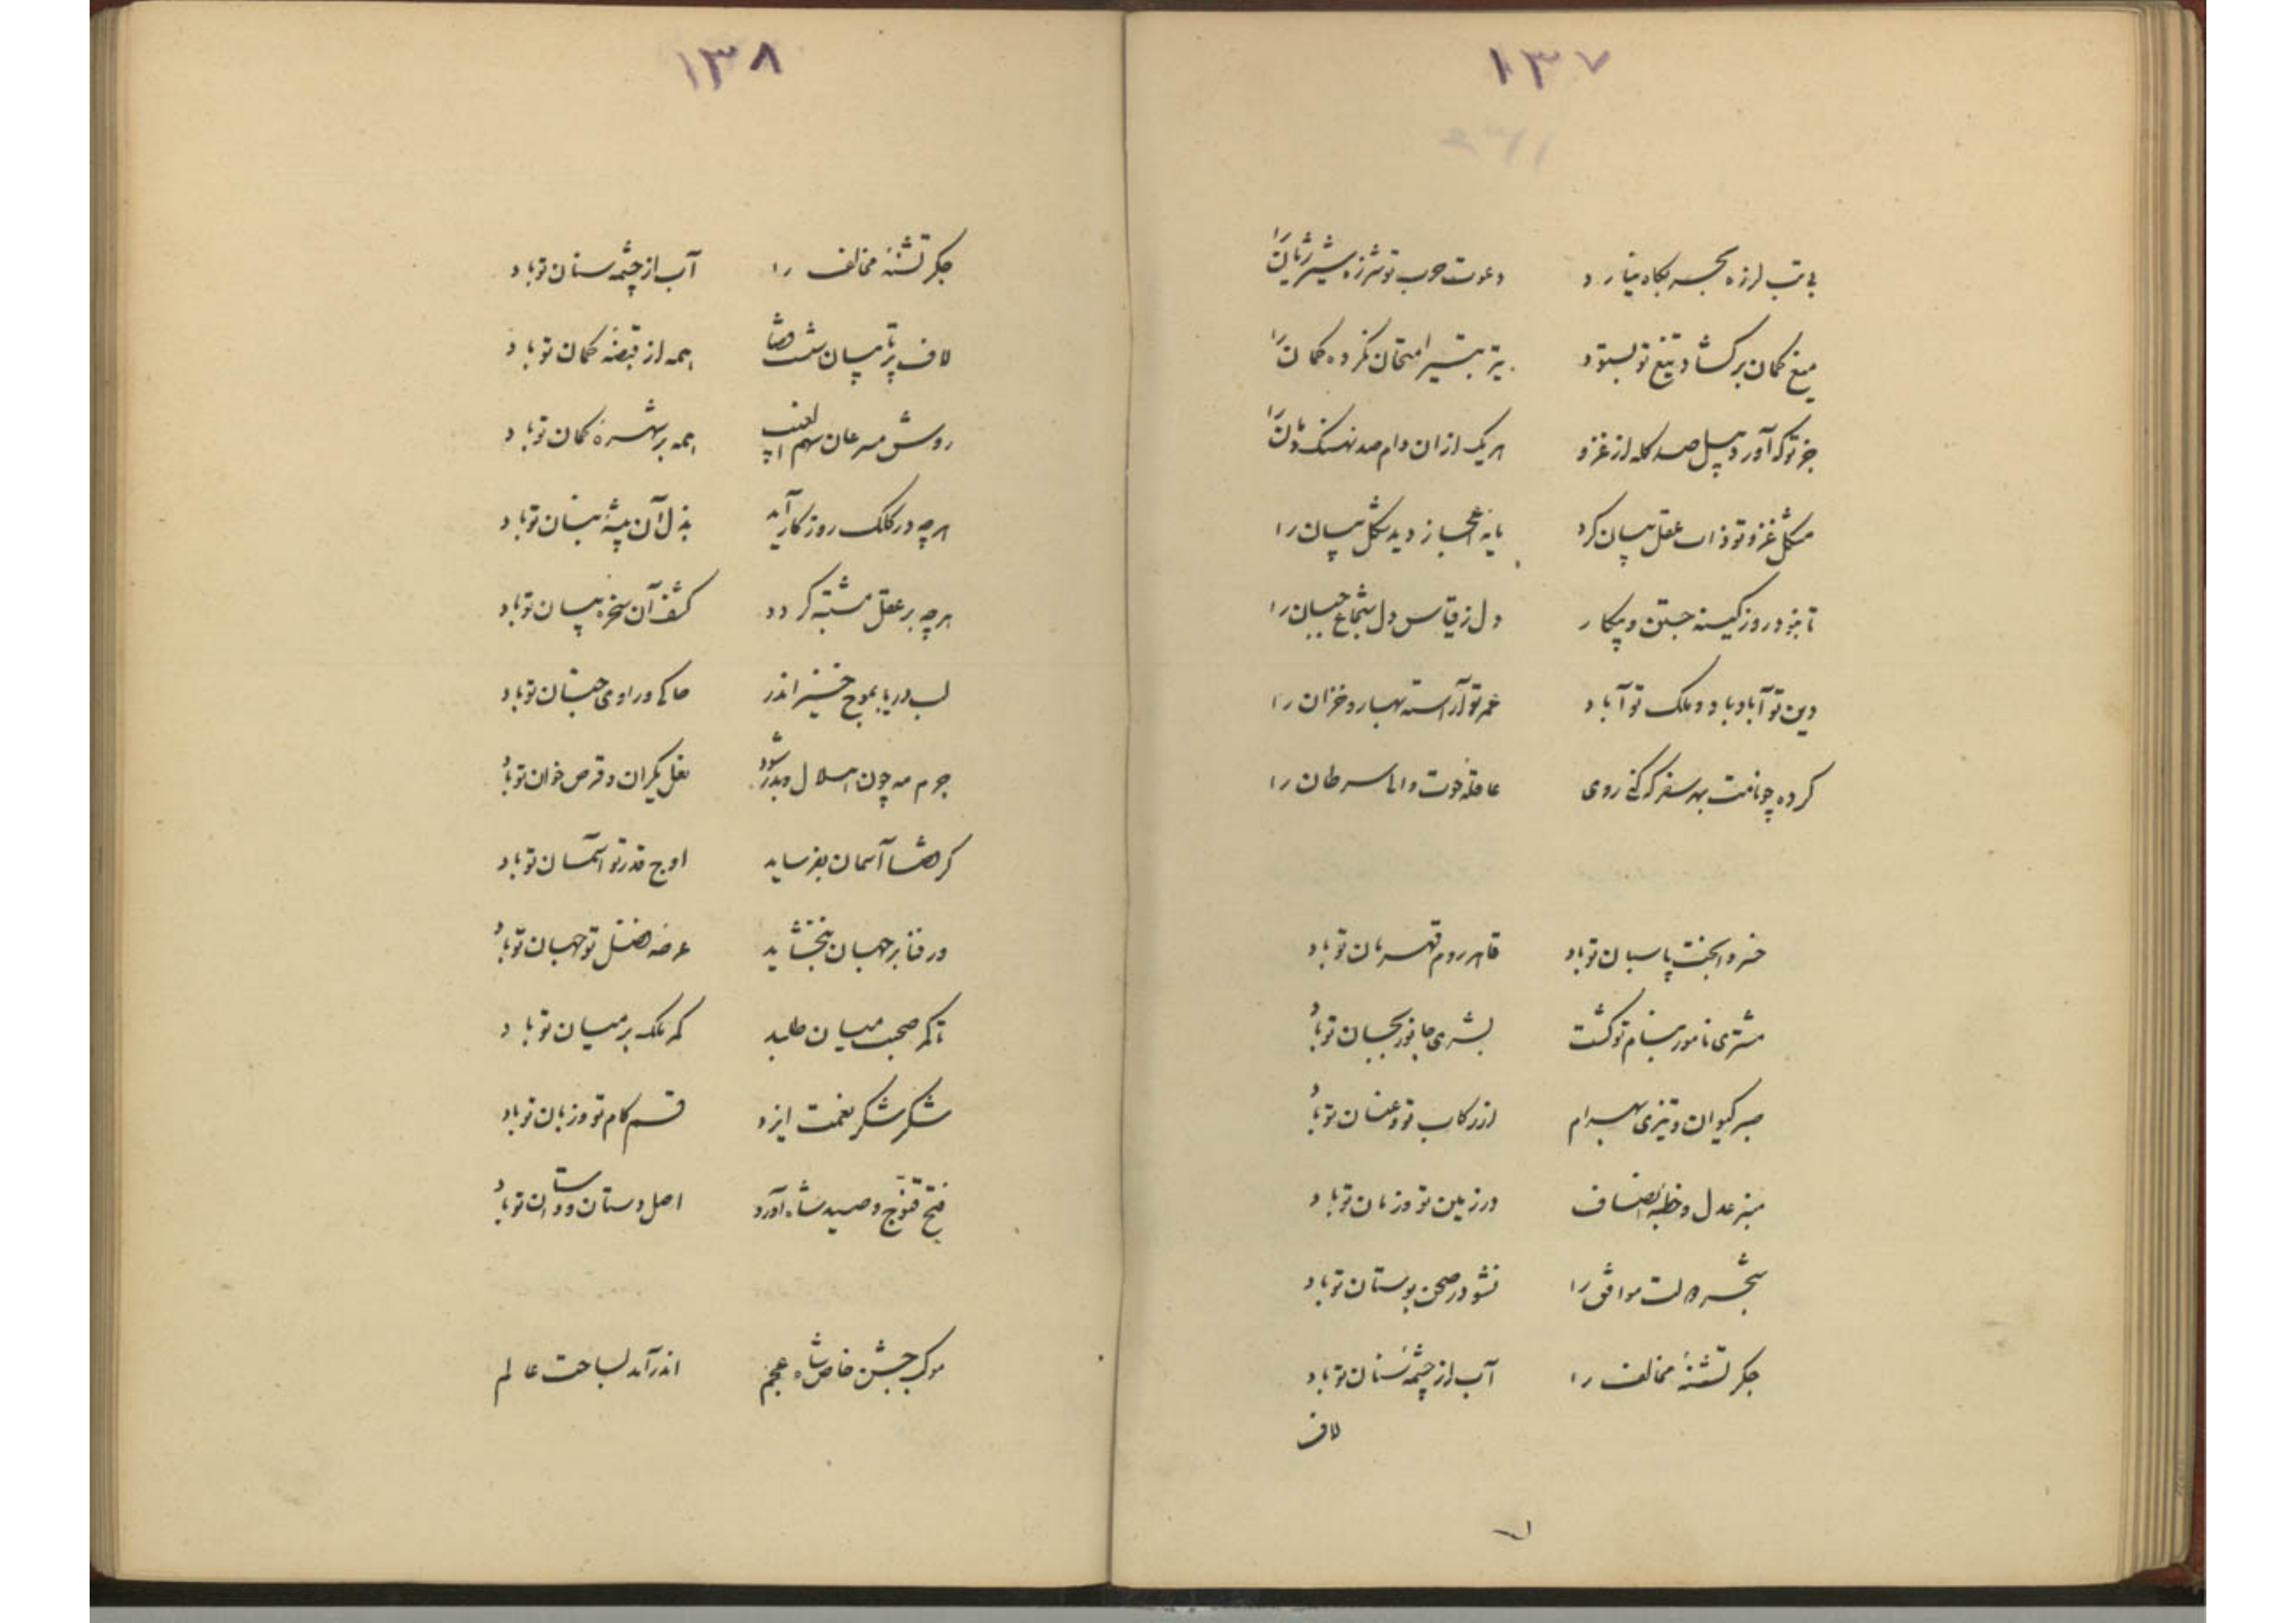 ۱۳۷
بی تب لرزه بحسر بکاه نیارد دعوت حرب تو شرزه شیر ژیان را
میغ کمان برکشاد تیغ تو بستود تیر بتیر امتحان نکرده کمان را
جز تو که آورد پیل صد کله از غزو هر یک ازان دام صد نهنک دمان را
مشکل غزو تو ذات عقل بیان کرد پایه اعجاز دید شکل بیان را
تا نبود روز کینه جستن و پیکار دل ز قیاس دل شجاع جبان را
دین تو آباد باد و ملک تو آباد عمر تو آراسته بهار و خزان را
کرده چو نامت بهر سفر که کنی روی عاقله حوت و انا سرطان را
خسروا بخت پاسبان تو باد قاهر روم قهرمان تو باد
مشتری نامور بنام تو کشت بشری جانور بجان تو باد
صبر کیوان و تیزی بهرام از رکاب تو و عنان تو باد
منبر عدل و خطبه انصاف در زمین تو و زمان تو باد
شجر دولت موافق را نشو در صحن بوستان تو باد
جکر تشنهٔ مخالف را آب از چشمه سنان تو باد
لاف
۱۳۸
جکر تشنهٔ مخالف را آب از چشمه سنان تو باد
لاف پرتابیان شست قضا همه از قبضه کمان تو باد
روش مسرعان سهم همه بر شهرهٔ کمان تو باد
هرچه در کلک روزکار آید بذل آن پیشهٔ بنان تو باد
هرچه بر عقل مشتبه کردد کشف آن سخره بیان تو باد
لب دریا بموج خیز اندر حاکی و راوی جنان تو باد
جرم مه چون هلال و بدر شود نعل یکران و قرص خوان تو باد
کر هشا آسمان بفرساید اوج قدر تو آسمان تو باد
ور فنا بر جهان نبخشاید عرضه فضل تو جهان تو باد
تا کمر صحبت میان طلبد کمر ملک بر میان تو باد
شکر شکر نعمت ایزد قسم کام تو و زبان تو باد
فتح قنّوج و صید شاه آورد اصل دستان و داستان تو باد
موکب جشن خاص شاه عجم اندر آمد بساحت عالم